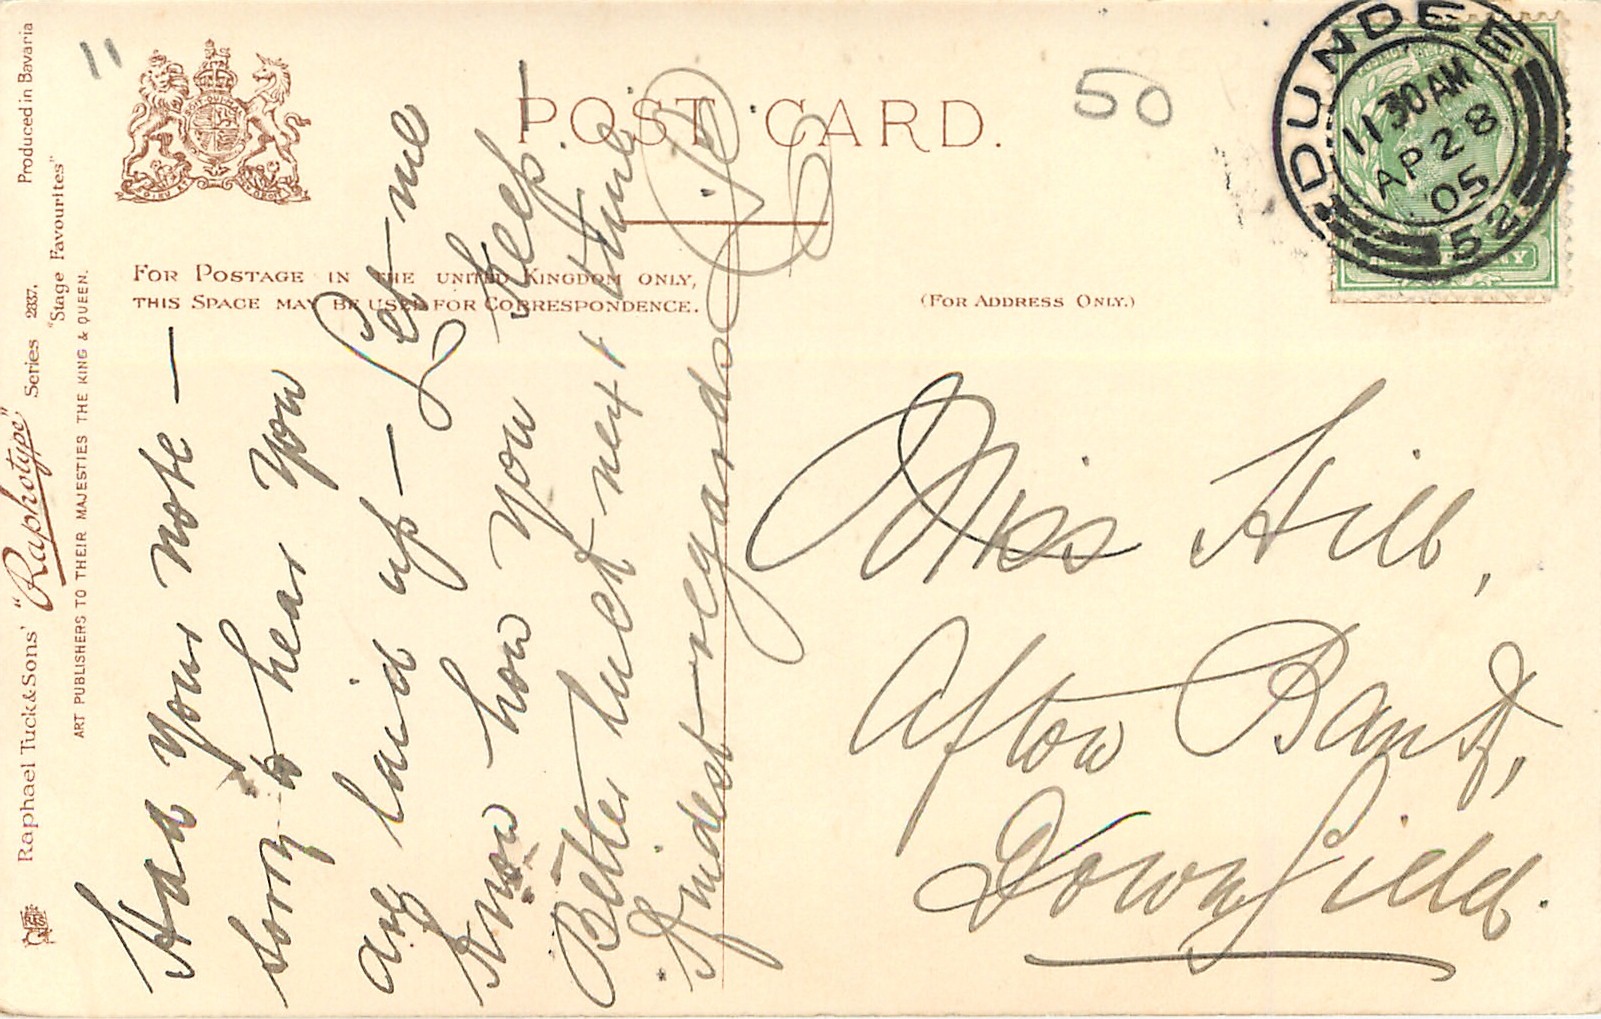 Produced in Bavaria
Raphael Tuck & Sons' "Raphotype" Series 2337.
"Stage Favourites"
ART PUBLISHERS TO THEIR MAJESTIES THE KING & QUEEN.
11
POST CARD.
50
FOR POSTAGE IN THE UNITED KINGDOM ONLY,
THIS SPACE MAY BE USED FOR CORRESPONDENCE.
(FOR ADDRESS ONLY.)
DUNDEE
11 30 AM
AP 28
05
52
Had your note —
sorry to hear you
are laid up — Let me
know how you keep.
Better luck next time
Kindest regards
Miss Hill,
Afton Bank,
Downfield.